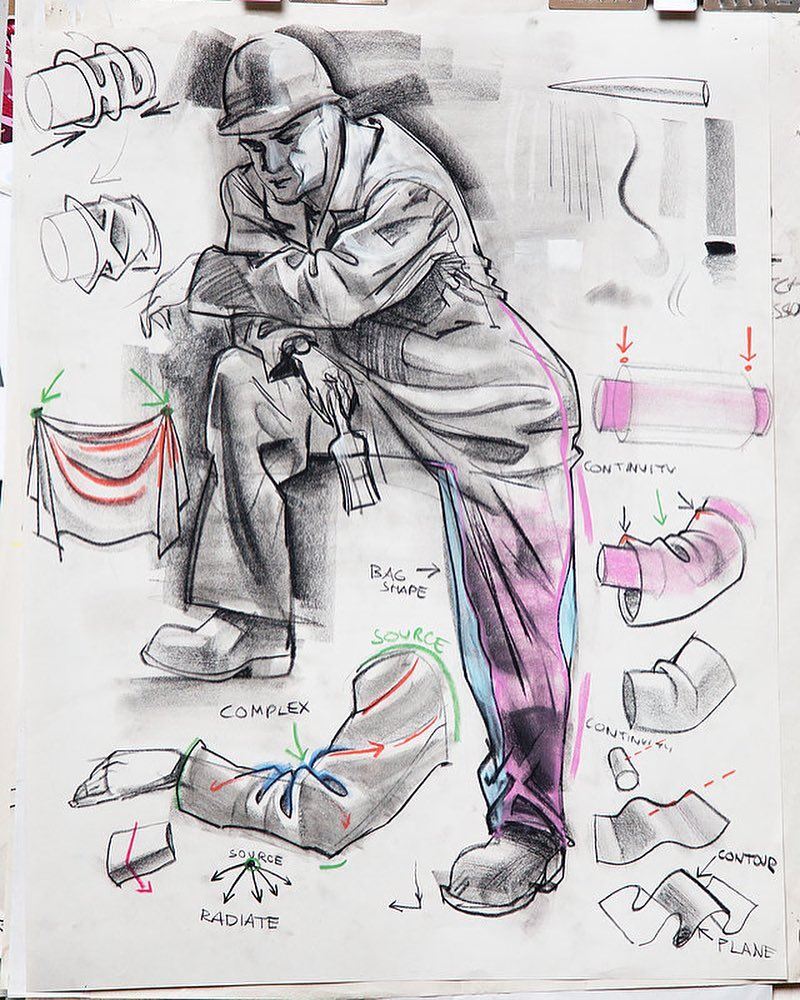 CONTINUITY
BAG
SHAPE
SOURCE
COMPLEX
CONTINUITY
SOURCE
RADIATE
CONTOUR
PLANE